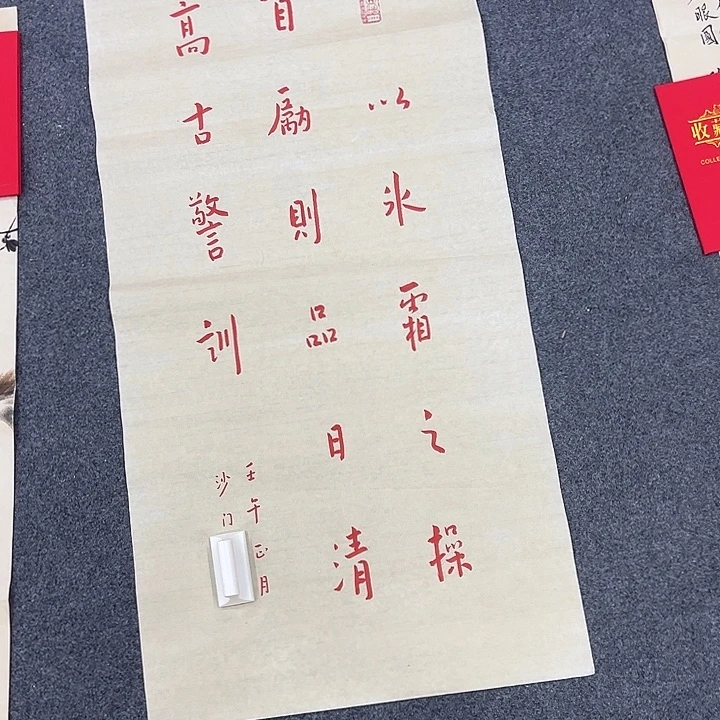 以氷霜之操
自勵則品日清
高古警訓
壬午正月
沙门
眼
國
收藏
COLLE